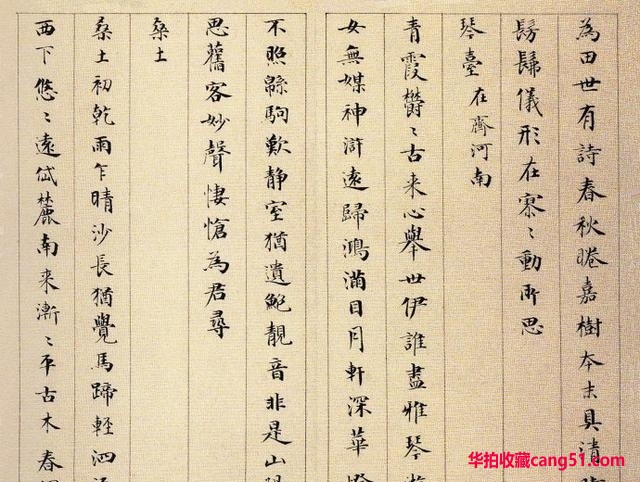 為田世有詩春秋睠嘉樹本末具清
髣髴儀形在寥〻動所思
琴臺 在齊河南
青霞欝〻古来心舉世伊誰盡雅琴
女無媒神滸遠歸鴻滿目月軒深華燈
不照緜駒歎静室猶遺鮑靚音非是山陽
思舊客妙聲悽愴為君尋
桑土
桑土初乾雨乍晴沙長猶覺馬蹄軽泗
西下悠〻遠岱麓南来漸〻平古木春
华拍收藏cang51.com